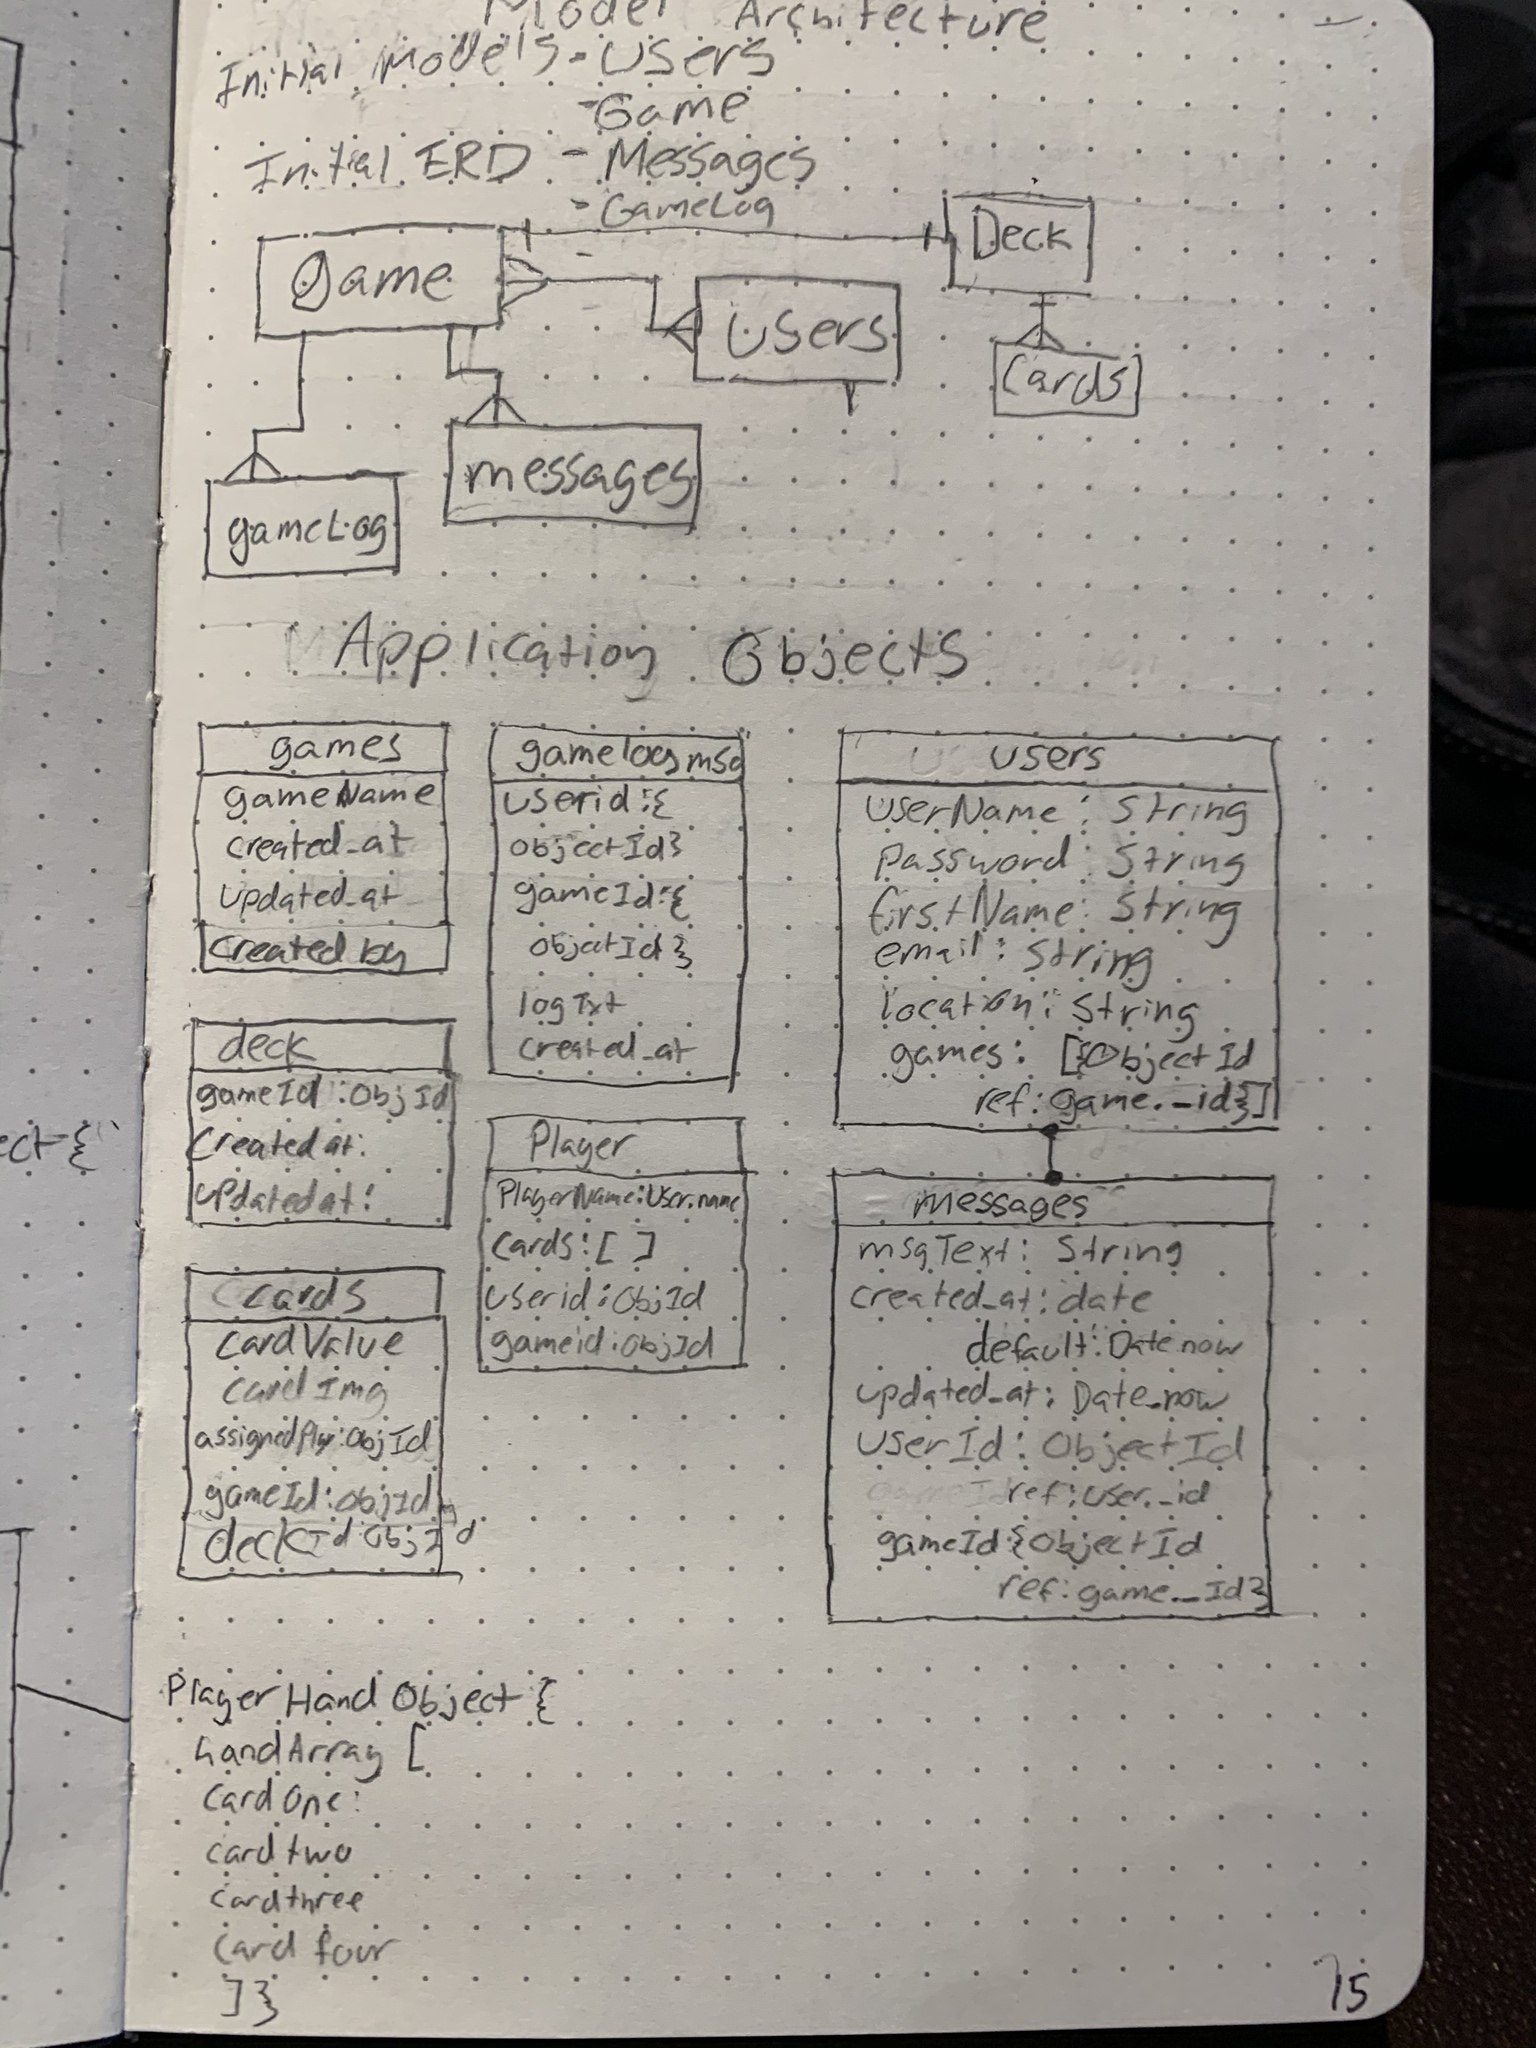 Model Architecture
Initial Models - Users
- Game
Initial ERD - Messages
- GameLog
Game
Deck
Users
Cards
messages
gameLog
Application Objects
games
gameName
created_at
updated_at
Created by
gamelogmsg
userid:{
objectId}
gameId:{
objectId}
logTxt
created_at
users
userName: String
password: String
firstName: String
email: String
location: String
games: [{ObjectId
ref: game._id}]
deck
gameId: ObjId
Created at:
updated at:
Player
PlayerName: User.name
Cards: [ ]
userid: ObjId
gameid: ObjId
messages
msgText: String
created_at: date
default: Date.now
updated_at: Date.now
userId: ObjectId
ref: user._id
gameId:{ObjectId
ref: game._Id}
cards
cardValue
cardImg
assignedPly: ObjId
gameId: ObjId
deckId ObjId
Player Hand Object {
handArray [
cardOne:
card two
card three
card four
]}
ect {
75